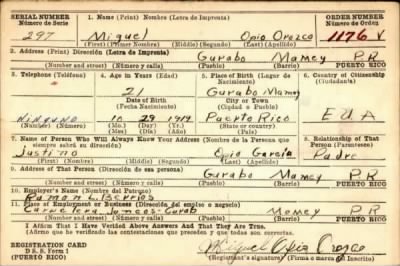 SERIAL NUMBER
Número de Serie
297
1. Name (Print) Nombre (Letra de Imprenta)
Miguel Opio Orozco
(First) (Primer Nombre) (Middle) (Segundo) (Last) (Apellido)
ORDER NUMBER
Número de Orden
1176 V
2. Address (Print) Dirección (Letra de Imprenta)
Gurabo Mamey P R
(Number) (Número) (Street) (Calle) (Town) (Pueblo)
PUERTO RICO
3. Telephone (Teléfono)
Ninguno
(Number) (Número)
4. Age in Years (Edad)
21
Date of Birth
(Fecha Nacimiento)
10 29 1919
(Mo.) (Day) (Yr.)
(Mes) (Día) (Año)
5. Place of Birth (Lugar de Nacimiento)
Gurabo Mamey
City or Town
(Ciudad o Pueblo)
Puerto Rico
(State or country)
6. Country of Citizenship
(Ciudadanía)
E U A
7. Name of Person Who Will Always Know Your Address (Nombre de la Persona que
siempre sabrá su dirección)
Justino Opio Garcia
(First) (Primer Nombre) (Middle) (Segundo) (Last) (Apellido)
8. Relationship of That
Person (Parentesco)
Padre
9. Address of That Person (Dirección de esa persona)
Gurabo Mamey P R
(Number) (Número) (Street) (Calle) (Town) (Pueblo)
PUERTO RICO
10. Employer's Name (Nombre del Patrono)
Ramon L. Berrios
11. Place of Employment or Business (Dirección del empleo o negocio)
Carretera Juncos-Gurabo Mamey P R
(Number) (Número) (Street) (Calle) (Town) (Pueblo)
PUERTO RICO
I Affirm That I Have Verified Above Answers And That They Are True.
Afirmo que he verificado las contestaciones que preceden y que todas son correctas.
REGISTRATION CARD
D S S. Form 1
(PUERTO RICO)
Miguel Opio Orozco
(Registrant's signature) (Firma o marca del Inscrito)